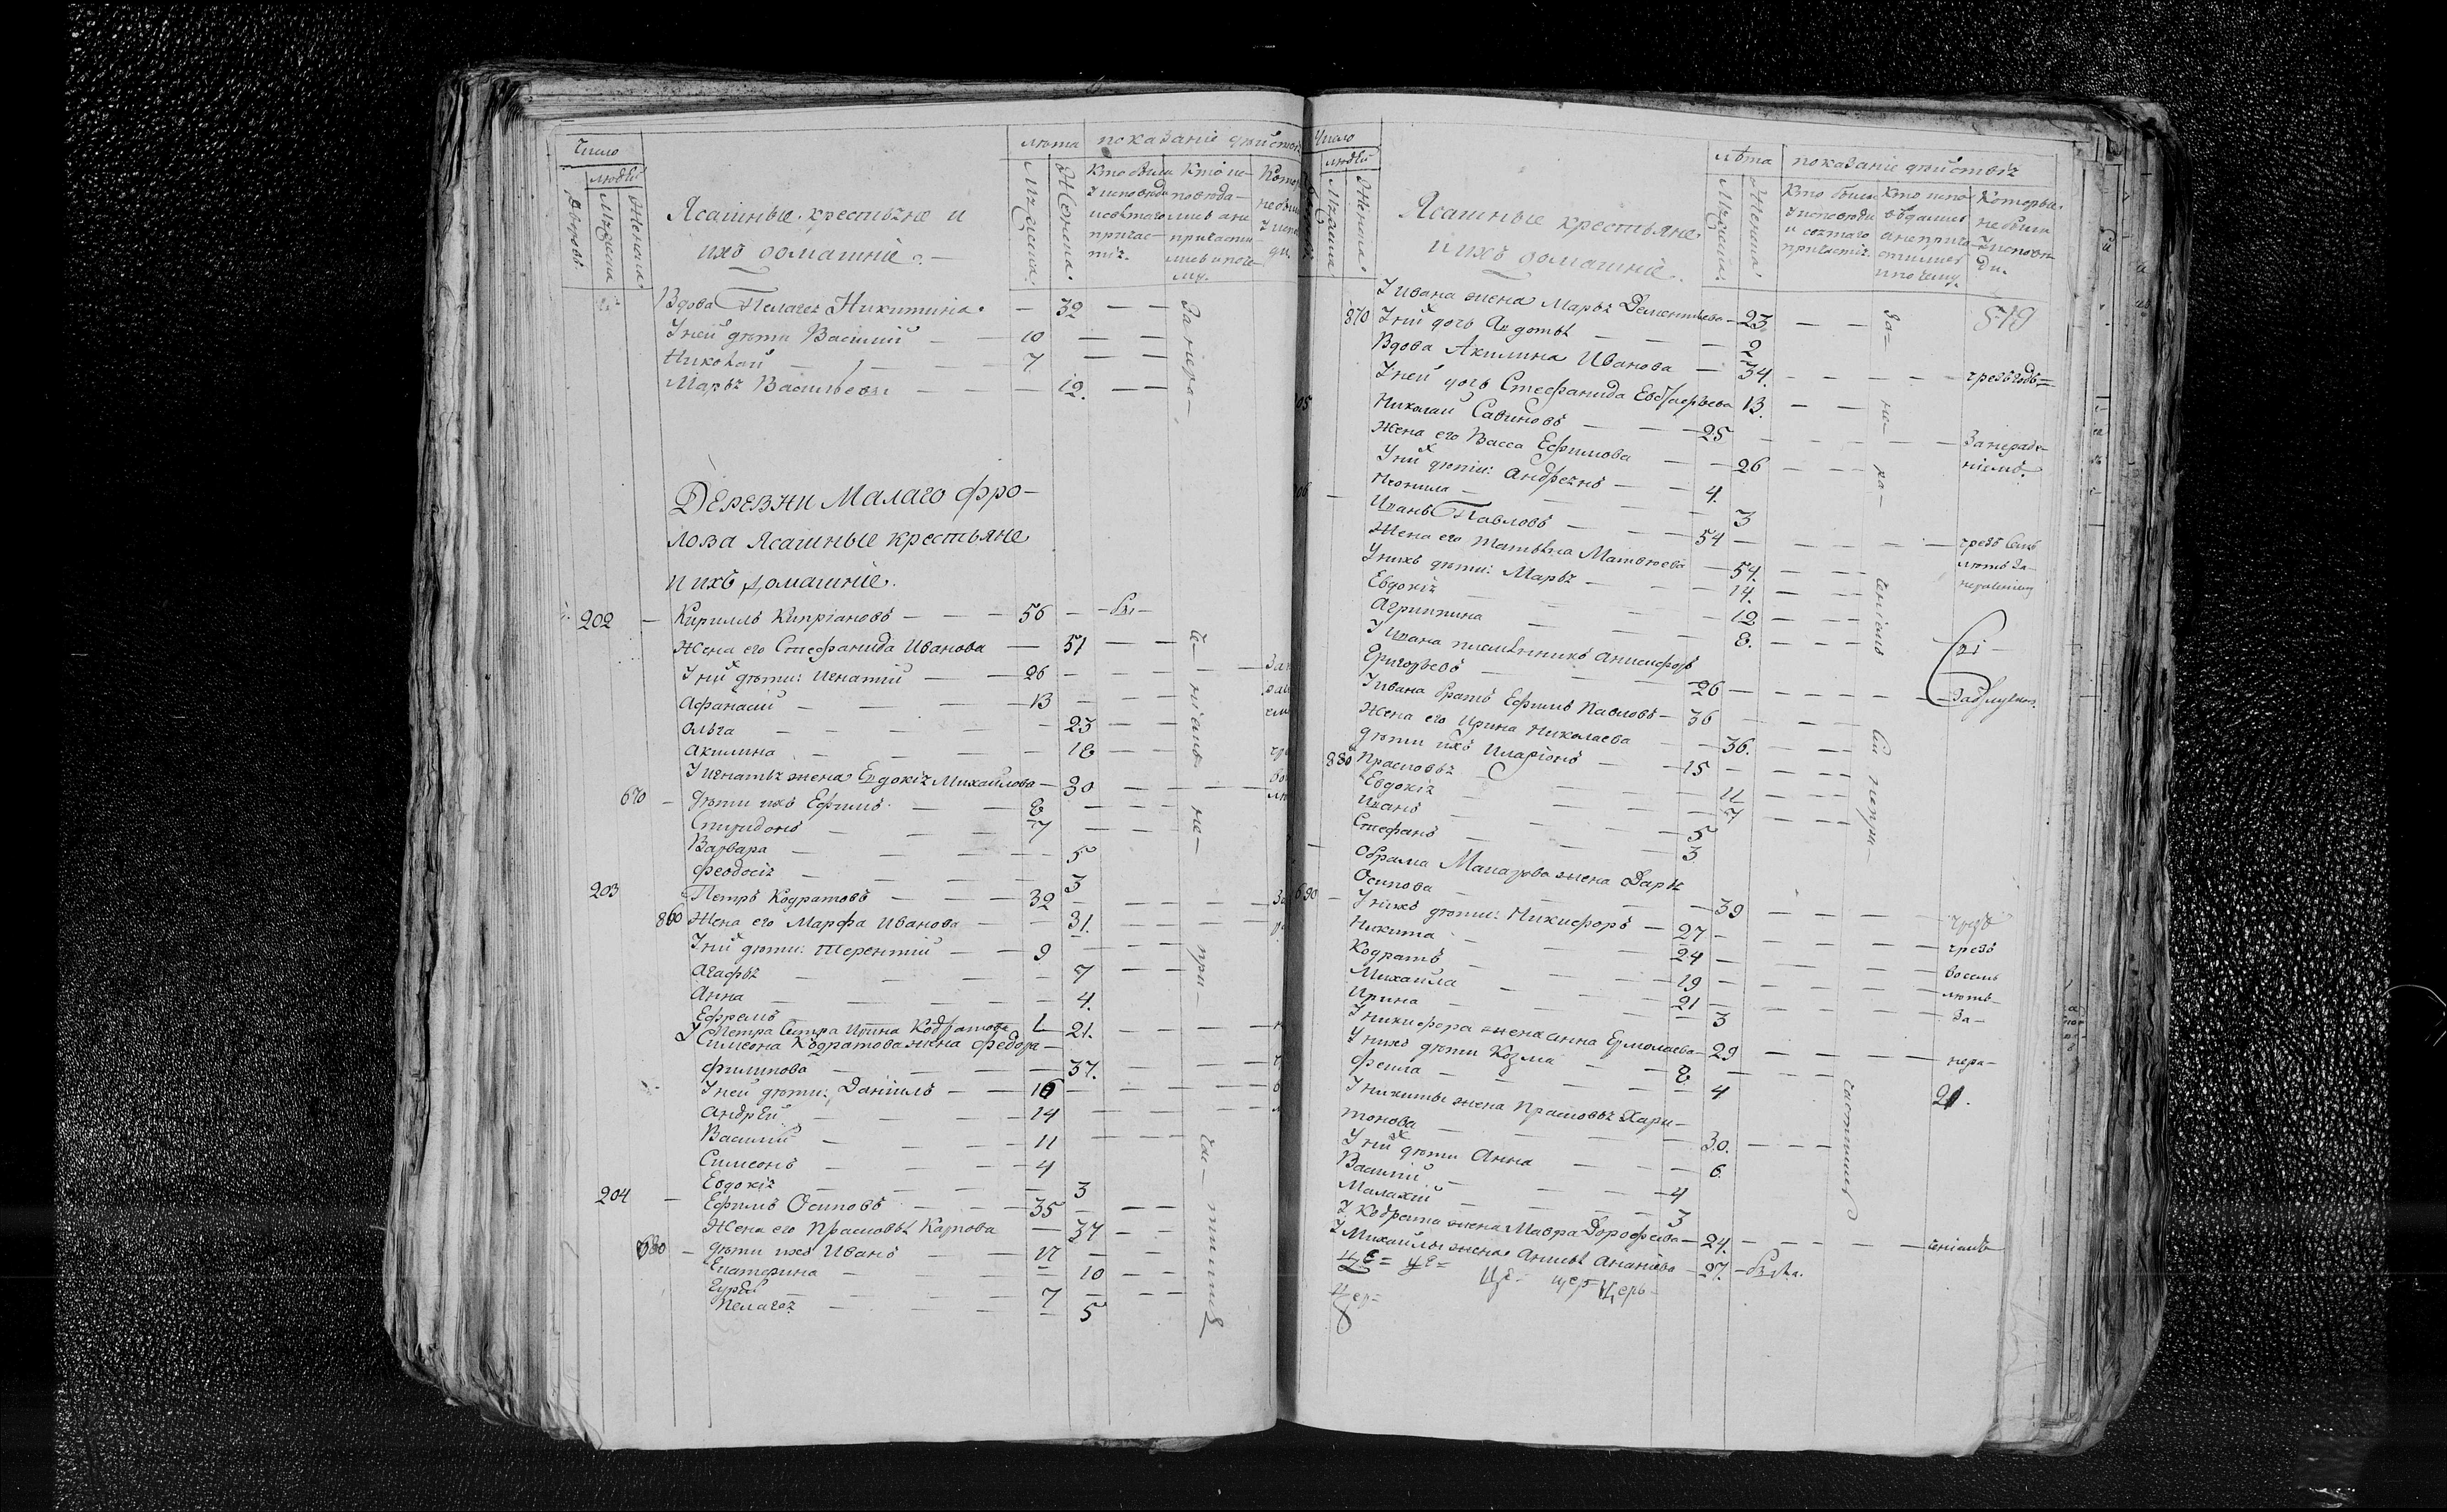 Число
людей
дворовъ
Мужеска
Женска
Ясашные крестьяне и
ихъ домашніе
лѣта
Мужеска
Женска
показаніе дѣйств
Кто были
у исповѣди
и святаго
причас-
тія.
Кто ис-
повѣда-
лись а не
причасти-
лись и поче-
му.
Вдова Пелагея Никитина — 32
У ней дѣти Василий — 10
Николай — 7
Марья Васильевы — 12.
За нера-
Деревни Малаго Фро-
лова Ясашные крестьяне
и ихъ домашніе.
202 — Кириллъ Кипріановъ — 56
Жена его Стефанида Иванова — 51
У них дѣти: Игнатий — 26
Афанасий — 13
Ольга — 23
Акилина — 18
У Игнатья жена Евдокія Михайлова — 30
670 — Дѣти ихъ Ефимъ — 8
Спиридонъ — 7
Варвара — 5
Феодосія — 3
203 Петръ Кодратовъ — 32
860 Жена его Марфа Иванова — 31.
У них дѣти: Терентий — 9
Агафья — 7
Анна — 4.
Ефремъ
У Петра сестра Ирина Кодратова 21.
Симеона Кодратова жена Федора
Филипова — 37.
У ней дѣти: Даніилъ — 16
Андрей — 14
Василий — 11
Симеонъ — 4
Евдокія — 3
204 — Ефимъ Осиповъ — 35
Жена его Прасковья Карпова — 37
680 — дѣти ихъ Иванъ — 17
Екатерина — 10
7
Пелагея — 5
че-
ніемъ
не-
при-
ча-
стились
Число
людей
Мужеска
Женска
Ясашные крестьяне
и ихъ домашніе.
лѣта
Мужеска
Женска
показаніе дѣйствъ
Кто были
у исповѣди
и святаго
причастія
Кто испо-
вѣдались
а не прича-
стились
и почему.
Которые
не были
у исповѣ-
ди.
519
У Ивана жена Марья Дементьева — 23
870 У них дочь Авдотья — 2
Вдова Акилина Иванова — 34. чрезъ годъ
У ней дочь Стефанида Евстафьева 13.
05 Николай Савиновъ — 25 — За неради-
Жена его Васса Ефимова — 26 ніемъ.
У них дѣти: Андреянъ — 4.
Неонила — 3
06 — Иванъ Павловъ — 54
Жена его Татьяна Матвѣева — 54.
У нихъ дѣти: Марья — 14.
Евдокія — 12
Агрипина — 8.
У Ивана племянникъ Анисифоръ
Григорьевъ — 26
У Ивана братъ Ефимъ Павловъ — 36
Жена его Ирина Николаева — 36.
дѣти ихъ Иларіонъ — 15
880 Прасковья — 11
Евдокія — 7
Иванъ — 5
Стефанъ — 3
жена Дарья
Осипова — 39
690 — У нихъ дѣти: Никифоръ — 27
Никита — 24
Кодратъ — 19
Михайла — 21
Ирина — 3
У Никифора жена Анна Ермолаева — 29
У нихъ дѣти Козма — 8
Фекла — 4
У Никиты жена Прасковья Хари-
тонова — 30.
У них дѣти Анна — 6
Василий — 4
Малахий — 3
У Кодрата жена Мавра Дорофеева — 24.
У Михайлы жена Анисья Ананьева — 27.
За-
не-
ра-
ченіемъ
непри-
частились
чрезъ
восемь
лѣтъ
За-
нера-
ченіемъ
21.